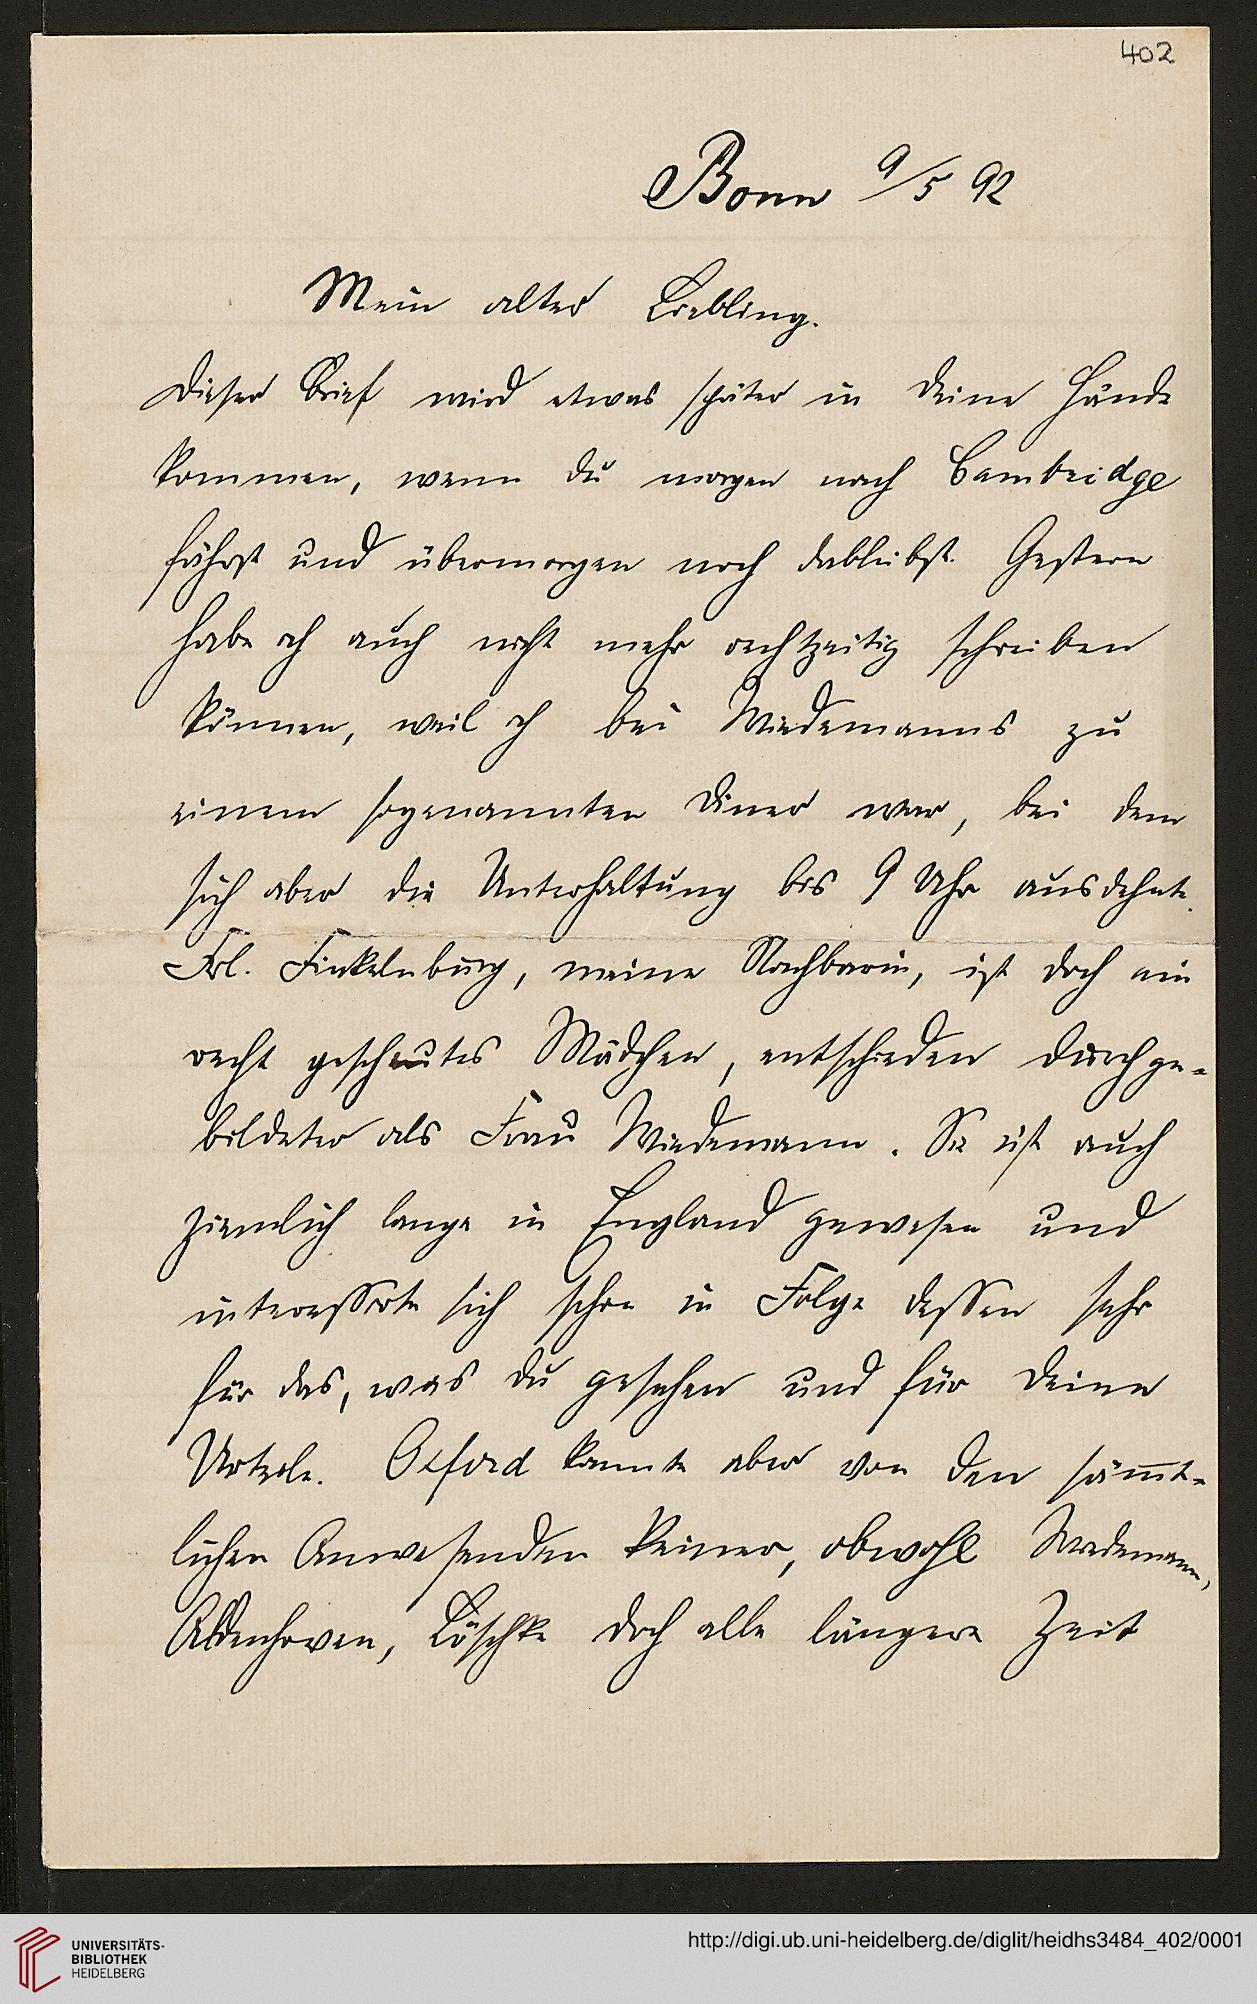 402
Bonn 9/5 92
Mein alter Liebling.
Dieser Brief wird etwas später in Deine Hände
kommen, wenn Du morgen nach Cambridge
fährst und übermorgen noch dableibst. Gestern
habe ich auch nicht mehr rechtzeitig schreiben
können, weil ich bei Wiedemanns zu
einem sogenannten Diner war, bei dem
sich aber die Unterhaltung bis 9 Uhr ausdehnte.
Frl. Finkelnburg, meine Nachbarin, ist doch ein
recht gescheutes Mädchen, entschieden durchge-
bildeter als Frau Wiedemann. Sie ist auch
ziemlich lange in England gewesen und
interessirte sich schon in Folge dessen sehr
für das, was Du gesehen und für Deine
Urteile. Oxford kannte aber von den sämmt-
lichen Anwesenden keiner, obwohl Wiedemann,
Aldenhoven, Löschke doch alle längere Zeit
UNIVERSITÄTS-
BIBLIOTHEK
HEIDELBERG
http://digi.ub.uni-heidelberg.de/diglit/heidhs3484_402/0001